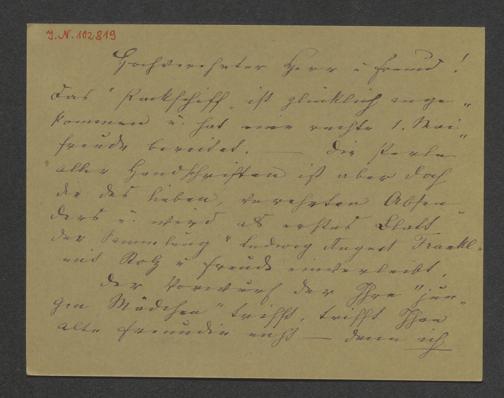 J.N. 102819
Hochverehrter Herr u Freund!
Das "Packschiff" ist glücklich ange-
kommen u. hat eine rechte 1. Mai-
freude bereitet. — Die Perle
aller Handschriften ist aber doch
die des lieben, verehrten Absen-
ders u. wird als erstes Blatt
der Sammlung "Ludwig August Frankl"
mit Stolz u Freude einverleibt.
Der Vorwurf der Ihre "jun-
gen Mädchen" trifft, trifft Ihre
alte Freundin nicht — denn ich